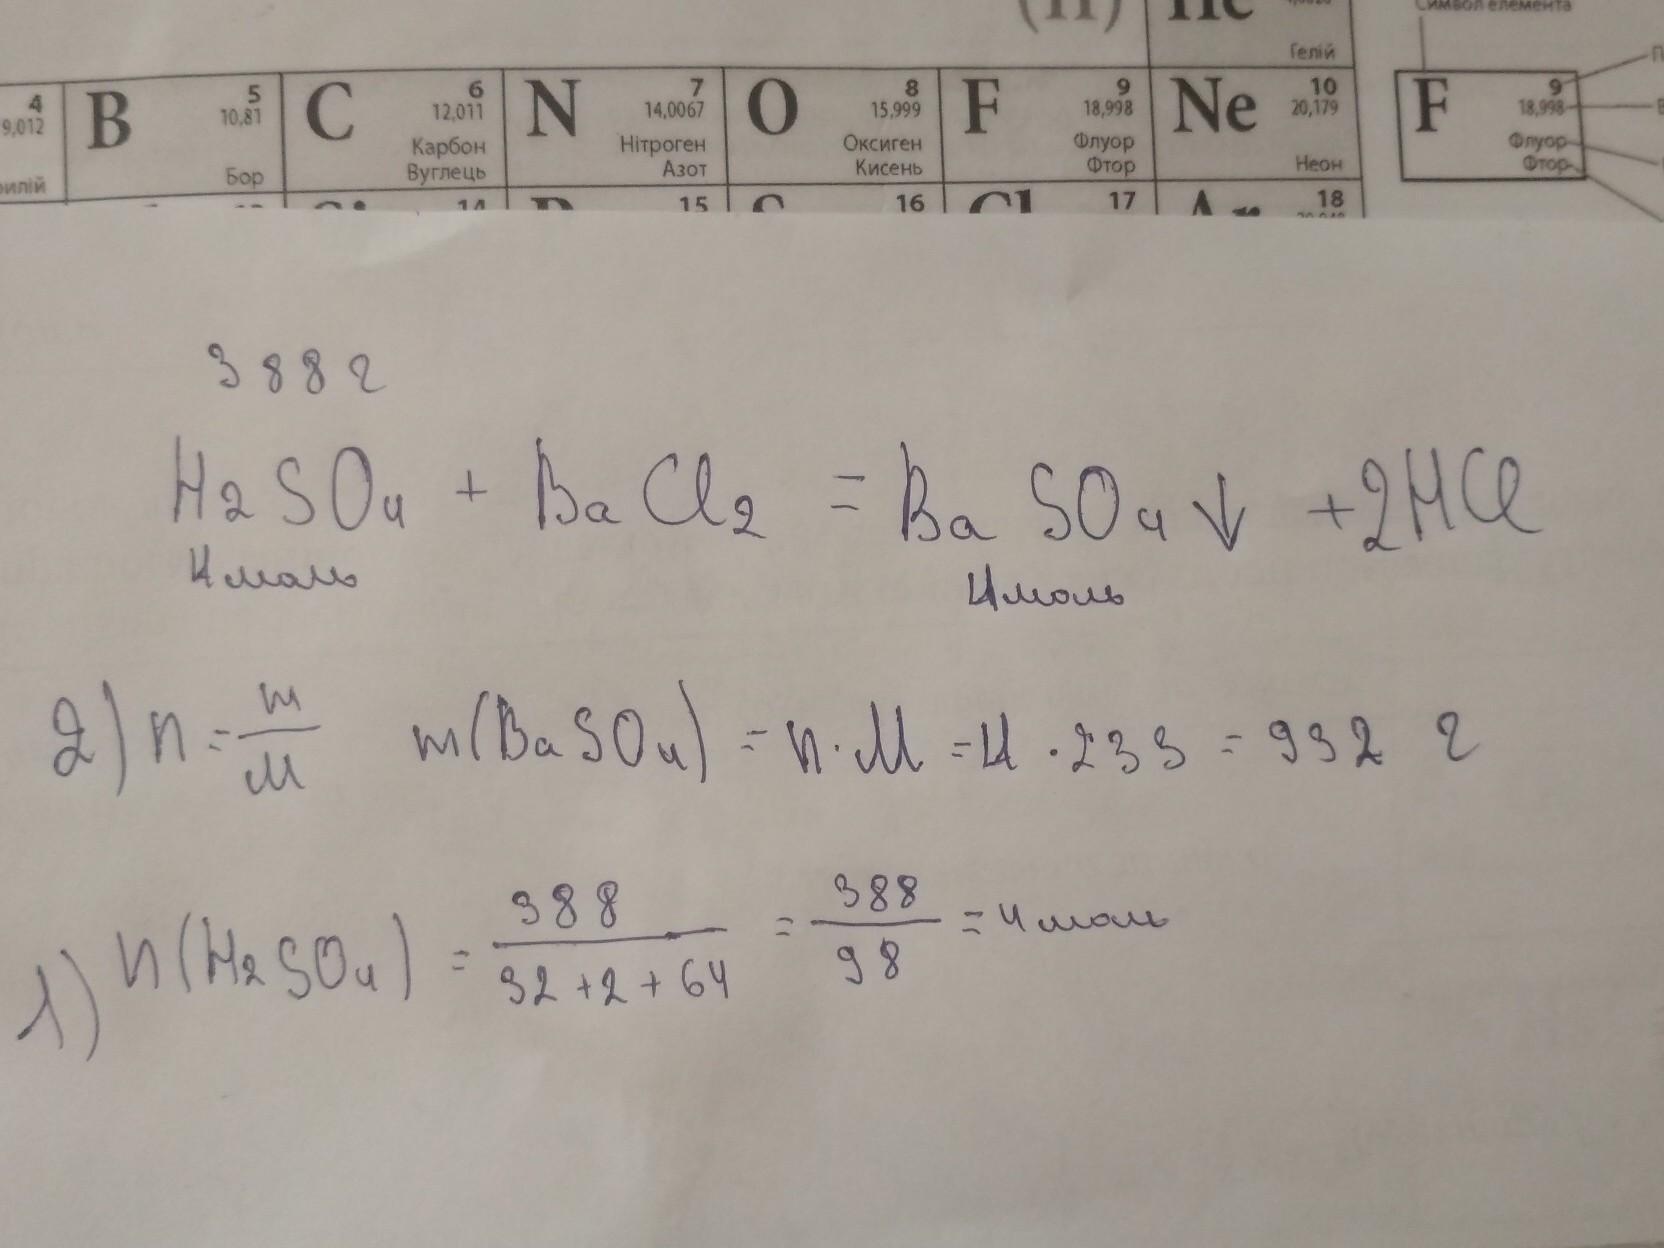 (H) He
Гелій
Символ елемента
4 B 5 C 6 N 7 O 8 F 9 Ne 10 F 9
9,012 10,81 12,011 14,0067 15,999 18,998 20,179 18,998
Карбон Нітроген Оксиген Флуор Флуор
Бор Вуглець Азот Кисень Фтор Неон Фтор
14 15 16 Cl 17 Ar 18
388 г
H2SO4 + BaCl2 = BaSO4↓ + 2HCl
4 моль 4 моль
2) n = m/M m(BaSO4) = n · M = 4 · 233 = 932 г
1) n(H2SO4) = 388/(32+2+64) = 388/98 = 4 моль